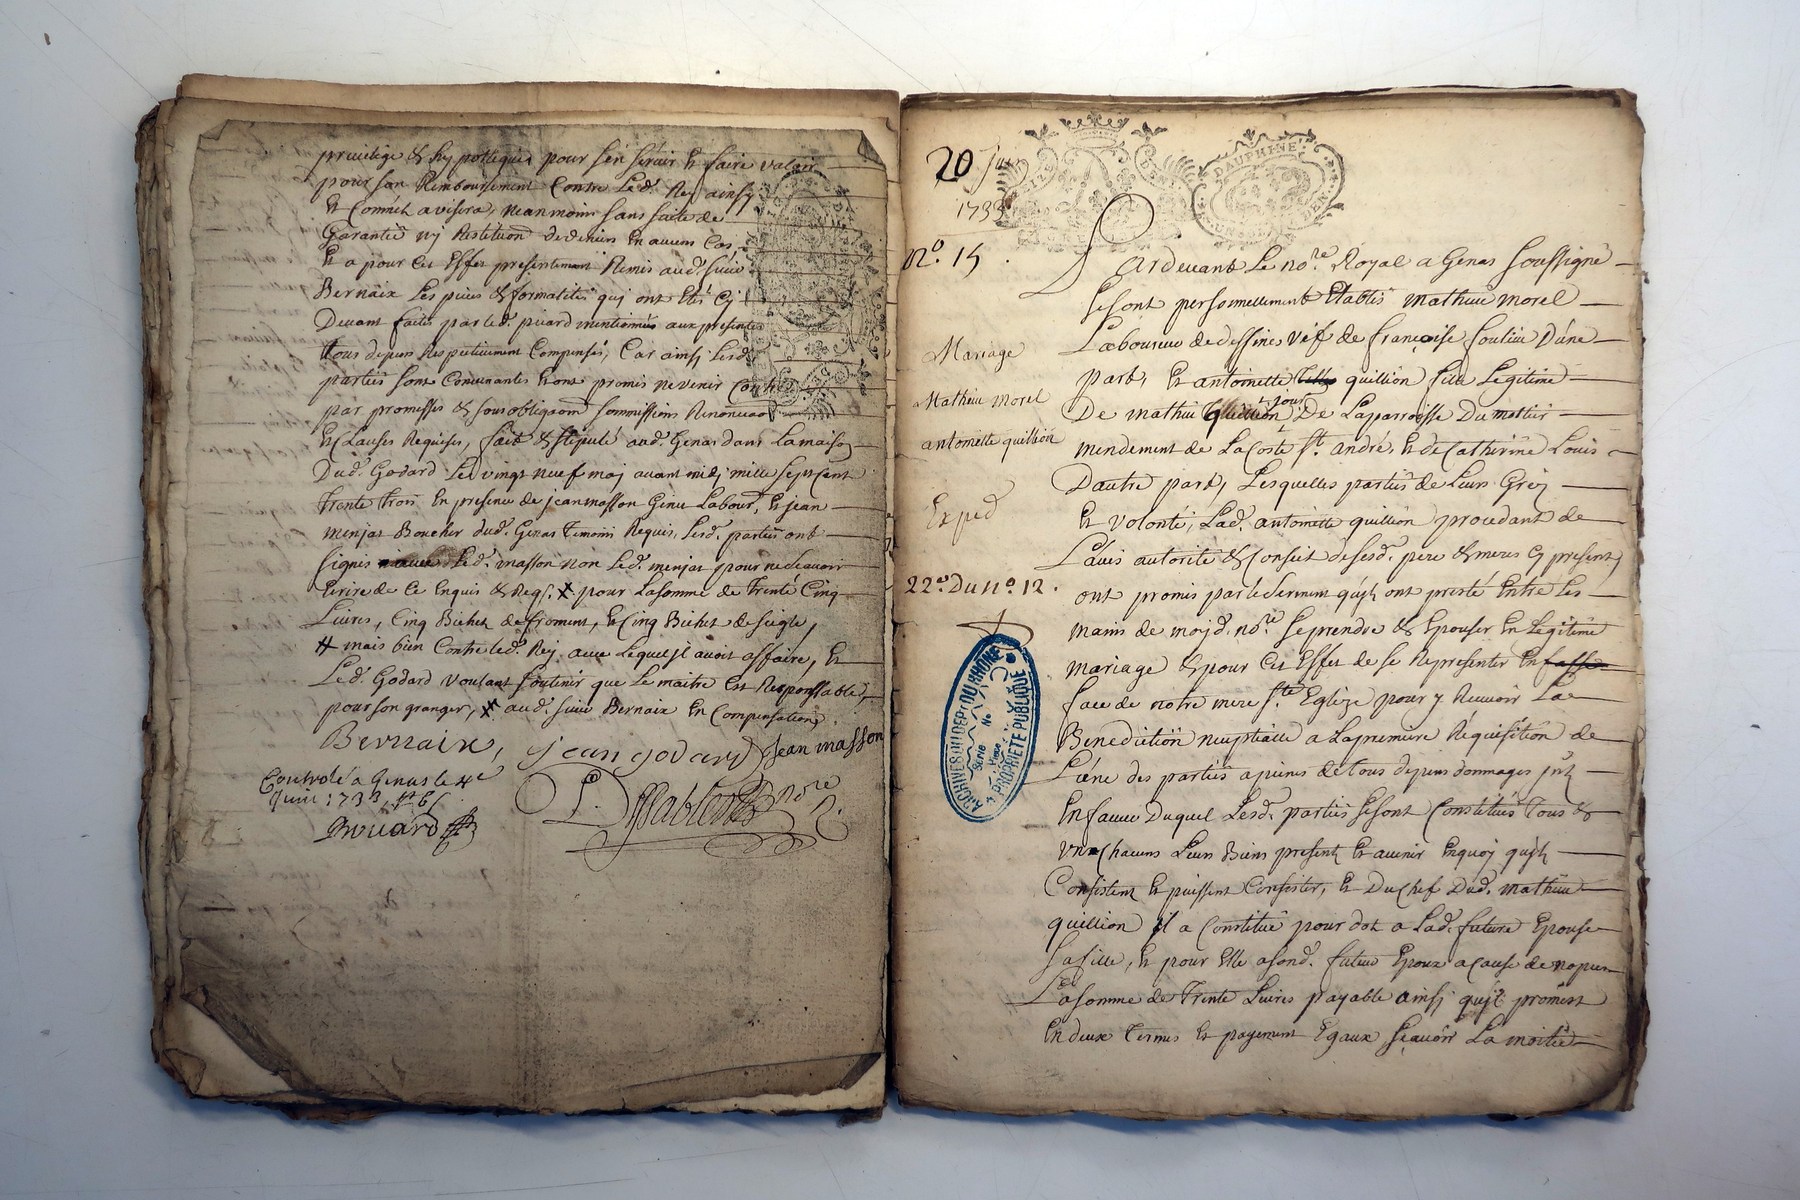 privilege & hypotteques pour s'en servir et faire valoir
pour son Remboursement Contre Led. Rey ainsy
Et Comme avisera, neanmoins sans suite de
Garantie ny Restitution de deniers En aucun Cas
Et a pour Cet Effet presentement Remis aud. sieur
Bernaix Les pieces & formalités quj ont Eté Cy
Devant faites par led. picard mentionnés aux presentes
tous depens Respectivement Compensés, Car ainsj Lesd.
parties sont Convenantes Et ont promis ne venir Contre
par promesses & sous obligaons soumissions Renonciaons
Et Clauses Requises, fait & stipulé aud. Genas dans La maison
Dud. Godard Le vingt neuf maj avant midj mille sept cent
trente trois En presence de jean masson Labour. Et jean
menjat Boucher dud. Genas temoins Requis, Lesd. parties ont
signés avec Led. masson non Led. menjat pour ne sçavoir
Ecrire de ce Enquis & Reqs. X pour La somme de trente Cinq
Livres, Cinq Bichet de froment, Et Cinq Bichet de seigle,
# mais bien Contre led. Rey avec Lequel jl avoit affaire, Et
Led. Godard voulant soutenir que Le maitre Est Responssable
pour son granger, X aud. sieur Bernaix En Compensation
Bernaix, jean godard Jean masson
Controlé a Genas le 4e
Juin 1733,
nore
20 Juin
1733
DAUPHINE
No. 15
Pardevant Le nore. Royal a Genas soussigné
se sont personnellement Etablis mathieu morel
Laboureur de dessines vef de françoise D'une
part, Et antoinette quillion fille Legitime
De mathieu quillion, De La parroisse Du mottier
mendement de La Coste st. andré, Et de Catherine Louis
D'autre part, Lesquelles parties de Leur Gréz
Et volonté, Lad. antoinette quillion procedant de
L'avis autorité & Conseit de sesd. pere & meres Cy present
ont promis par le serment qu'jls ont presté Entre Les
mains de moj d. nore. se prendre & Epouser En Legitime
mariage & pour Cet Effet de se Representer En
face de notre mere ste. Eglize pour y Recevoir La
Benediction neuptialle a La premiere Requisition de
L'une des parties a peines de tous depens dommages jnt
En faveur Duquel Lesd. parties se sont Constitués tous &
un Chacuns Leurs Biens present Et avenir Enquoj qu'jls
Consistent Et puissent Consister, Et Du chef Dud. mathieu
quillion jl a Constitué pour dot a Lad. future Epouse
sa fille, Et pour Elle a sond. futeur Epoux a Cause de nopces
La somme de trente Livres payable ainsj qu'jl promest
En deux termes Et payement Egaux sçavoir La moitié
Mariage
Mathieu morel
antoinette quillion
Exped
22e. Du no. 12.
ARCHIVES DU DEPt DU RHONE
PROPRIETE PUBLIQUE
Série No